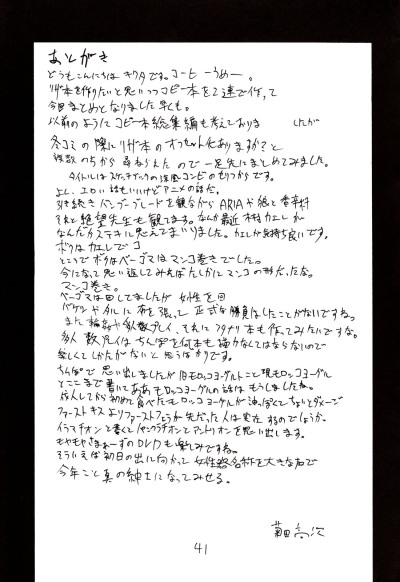 あとがき
どうもこんにちは キクタです。コーヒーうめー。
リザ本を作りたいと思いつつコピー本を2連で作って
今回まとめとなりました 早くも。
以前のようにコピー本総集編も考えておりましたが
冬コミの際にリザ本のオフセット化ありますか？と
複数の方から 尋ねられたので一足先にまとめてみました。
タイトルはスケッチブックの コンビのセリフからです。
よし、エロい話もいいけどアニメの話だ。
引き続き バンブーブレードを観ながら ARIAや 狼と香辛料
それと絶望先生も観てます。なんか最近 木村カエレが
なんだかステキに思えてまいりました。カエレが気持ち良いです。
ボクはカエレでコ
ところでボクはベーゴマはマンコ巻きでした。
今になって思い返してみればたしかにマンコの形だったな。
マンコ巻き。
ベーゴマは回してましたが 女性を回
バケツや タルに布を張って 正式な勝負はしたことがないですねっ
また輪姦や多人数プレイ、それにフタナリ本も作ってみたいですな。
多人数プレイは ちんぽを何本も描かなくてはならないので
楽しくてしかたがないと思うばかりです。
ちんぽで 思い出しましたが 旧モロッコヨーグルトこと現モロッコヨーグル
とここまで書いて ああモロッコヨーグルの話は もうしましたね。
成人してから初めて食べたモロッコヨーグルが油っぽくてちょいとダメージ
ファーストキスよりファーストフェラが先だった人は実在するのでしょうか。
イラマチオンと書くと ヤンクラチオンとアントリオンを思い出します。
もやもやさまぁーずのDVDも楽しみですね。
そういえば初日の出に向かって 女性器名称を大きな声で
今年こそ真の紳士になってみせる。
41